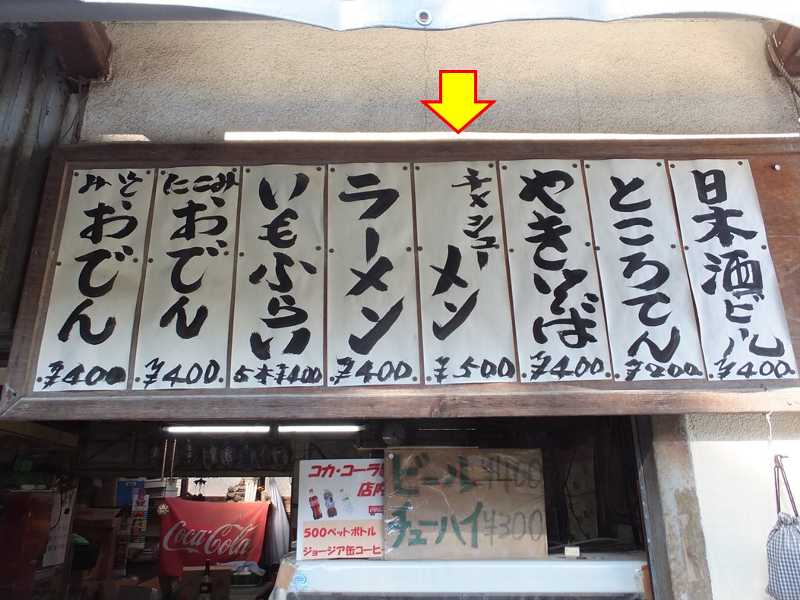 日本酒ビール
¥400
ところてん
¥200
やきそば
¥400
チャシュー
メン
¥500
ラーメン
¥400
いもふらい
5本¥400
にこみ
おでん
¥400
みそ
おでん
¥400
コカ・コーラ
店内
500ペットボトル
ジョージア缶コーヒ
ビール¥400
チューハイ¥300
Coca-Cola